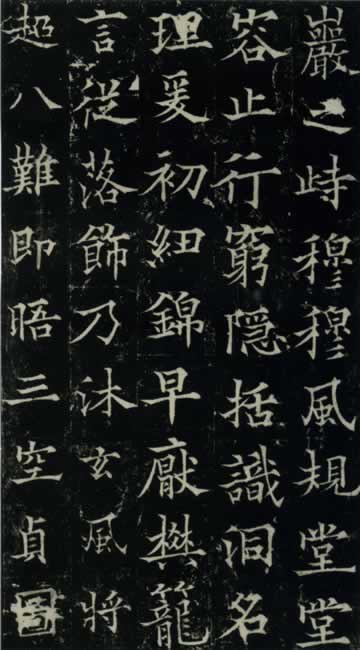 巖之峙穆穆風規堂堂
容止行窮隱括識洞名
理爰初紐錦早厭樊籠
言從落飾乃沐玄風將
超八難即晤三空貞